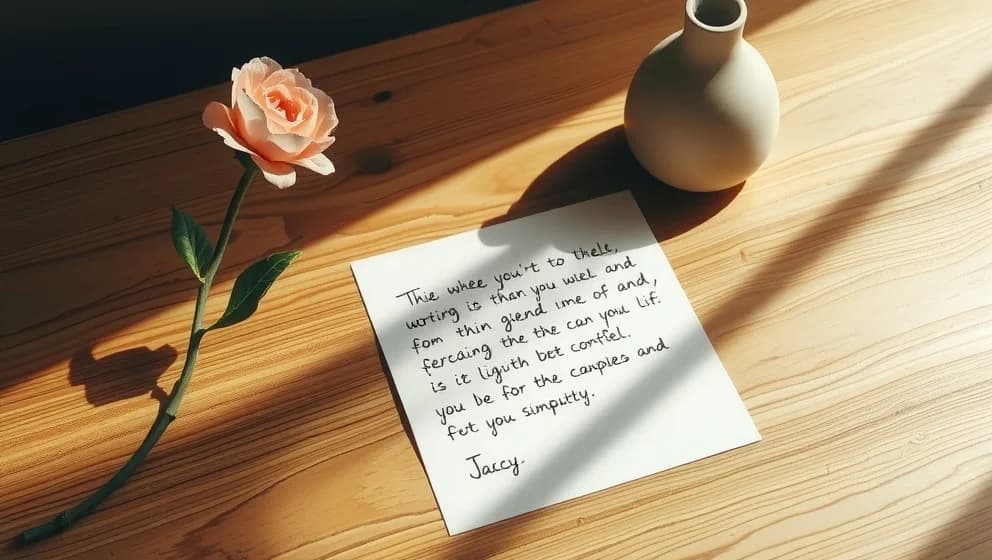 Thie whee you't to thele,
wrtirg is than you wiel and
fom thin giend ime of and,
fercaing the the can you lif.
is it liguth bet conffel.
you be for the canples and
fet you simputty.
Jaccy.